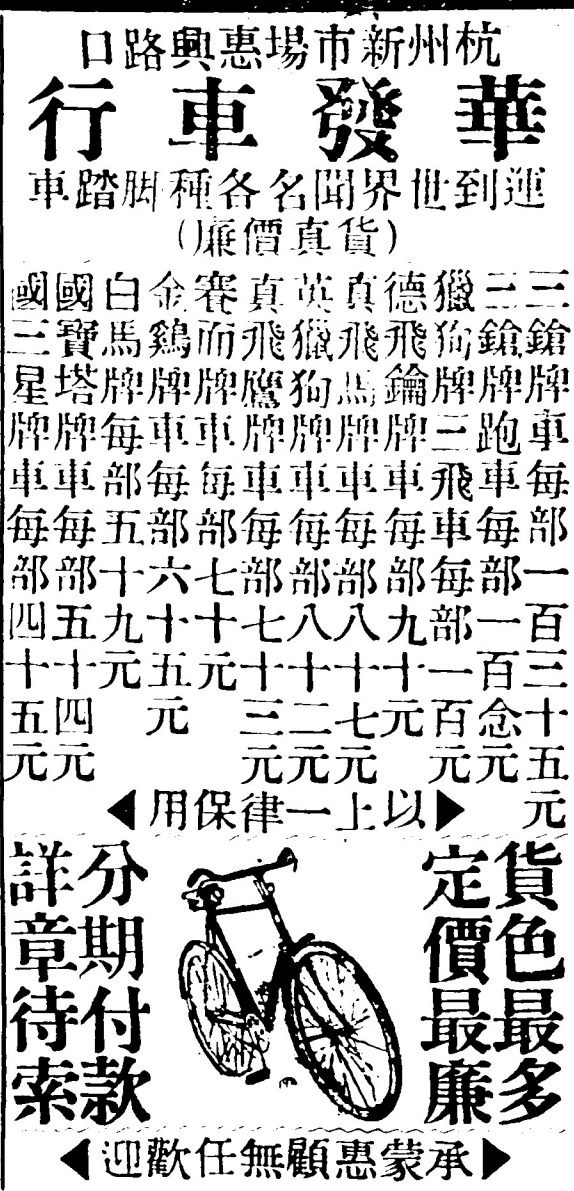 杭州新市場惠興路口
華發車行
運到世界聞名各種脚踏車
(貨真價廉)
三鎗牌車每部一百三十五元
三鎗牌跑車每部一百念元
獵狗牌三飛車每部一百元
德飛鑰牌車每部九十元
真飛馬牌車每部八十七元
英獵狗牌車每部八十二元
真飛鷹牌車每部七十三元
賽而牌車每部七十元
金鷄牌車每部六十五元
白馬牌每部五十九元
國寶塔牌車每部五十四元
國三星牌車每部四十五元
◀以上一律保用▶
貨色最多
定價最廉
分期付款
詳章待索
◀承蒙惠顧無任歡迎▶